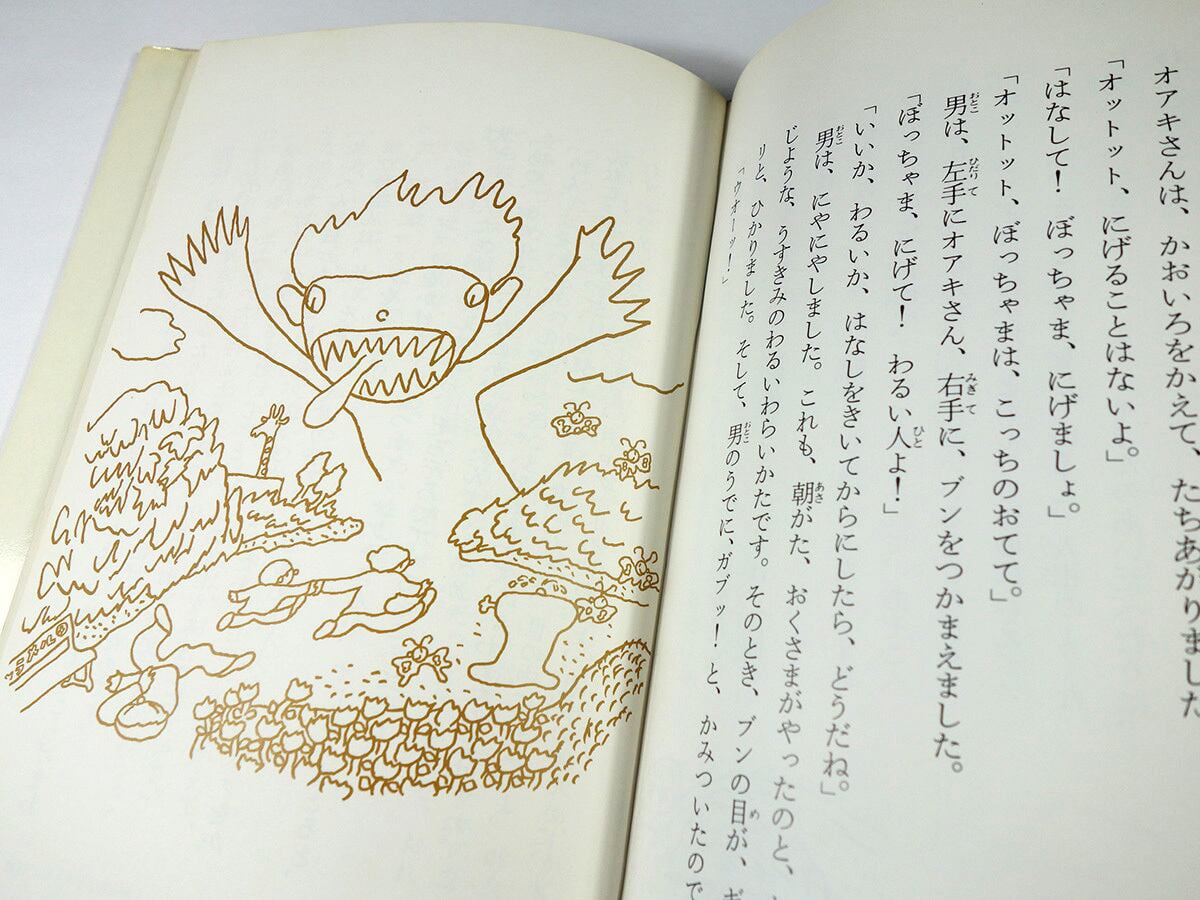 オアキさんは、かおいろをかえて、たちあがりました
「オットット、にげることはないよ。」
「はなして！　ぼっちゃま、にげましょ。」
「オットット、ぼっちゃまは、こっちのおてて。」
男は、左手にオアキさん、右手に、ブンをつかまえました。
「ぼっちゃま、にげて！　わるい人よ！」
「いいか、わるいか、はなしをきいてからにしたら、どうだね。」
男は、にやにやしました。これも、朝がた、おくさまがやったのと、
じような、うすきみのわるいわらいかたです。そのとき、ブンの目が、ギ
リと、ひかりました。そして、男のうでに、ガブッ！　と、かみついたので
「ウオーッ！」
ラメル